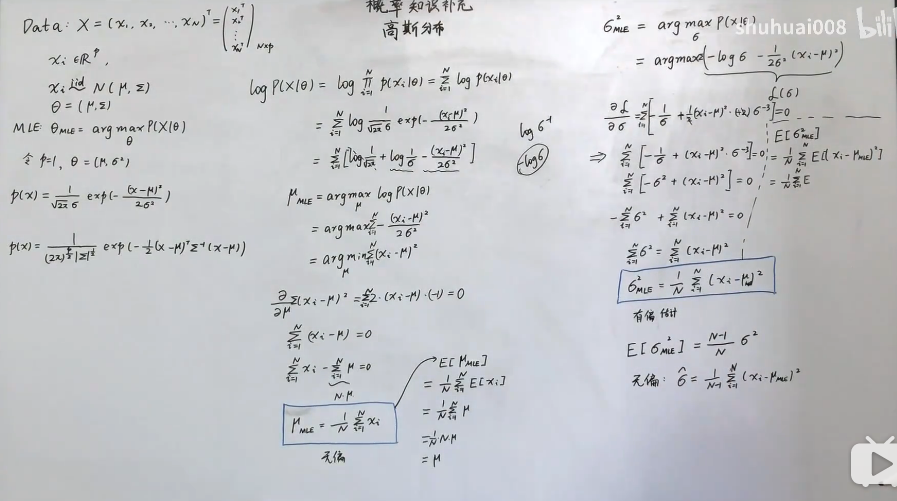 概率知识补充
高斯分布
Data: X = (x₁, x₂, ⋯, x_N)ᵀ = (x₁ᵀ x₂ᵀ ⋮ x_Nᵀ)_{N×p}
xᵢ ∈ ℝᵖ,
xᵢ iid~ N(μ, Σ)
θ = (μ, Σ)
MLE: θ_MLE = arg max_θ P(X|θ)
令 p=1, θ = (μ, σ²)
p(x) = 1/(√2π σ) exp(-(x-μ)²/2σ²)
p(x) = 1/((2π)^{p/2} |Σ|^{1/2}) exp(-½(x-μ)ᵀ Σ⁻¹ (x-μ))
log P(X|θ) = log ∏_{i=1}^N p(xᵢ|θ) = Σ_{i=1}^N log p(xᵢ|θ)
= Σ_{i=1}^N log 1/(√2π σ) exp(-(xᵢ-μ)²/2σ²)
= Σ_{i=1}^N [log 1/√2π + log 1/σ - (xᵢ-μ)²/2σ²]
log σ⁻¹
-log σ
μ_MLE = arg max_μ log P(X|θ)
= arg max_μ Σ_{i=1}^N -(xᵢ-μ)²/2σ²
= arg min_μ Σ_{i=1}^N (xᵢ-μ)²
∂/∂μ Σ(xᵢ-μ)² = Σ_{i=1}^N 2·(xᵢ-μ)·(-1) = 0
Σ_{i=1}^N (xᵢ-μ) = 0
Σ_{i=1}^N xᵢ - Σ_{i=1}^N μ = 0
N·μ
μ_MLE = 1/N Σ_{i=1}^N xᵢ
无偏
E[μ_MLE]
= 1/N Σ_{i=1}^N E[xᵢ]
= 1/N Σ_{i=1}^N μ
= 1/N N·μ
= μ
shuhuai008
bili
σ²_MLE = arg max_σ P(X|θ)
= arg max Σ(-log σ - 1/2σ² (xᵢ-μ)²)
ℒ(σ)
∂ℒ/∂σ = Σ_{i=1}^N [-1/σ + ½(xᵢ-μ)²·(+2)σ⁻³] = 0
⇒ Σ_{i=1}^N [-1/σ + (xᵢ-μ)²·σ⁻³] = 0
Σ_{i=1}^N [-σ² + (xᵢ-μ)²] = 0
-Σ_{i=1}^N σ² + Σ_{i=1}^N (xᵢ-μ)² = 0
Σ_{i=1}^N σ² = Σ_{i=1}^N (xᵢ-μ)²
σ²_MLE = 1/N Σ_{i=1}^N (xᵢ-μ_MLE)²
有偏估计
E[σ²_MLE]
= 1/N Σ_{i=1}^N E[(xᵢ-μ)²]
= 1/N Σ_{i=1}^N E
E[σ²_MLE] = (N-1)/N σ²
无偏: σ̂ = 1/(N-1) Σ_{i=1}^N (xᵢ-μ_MLE)²